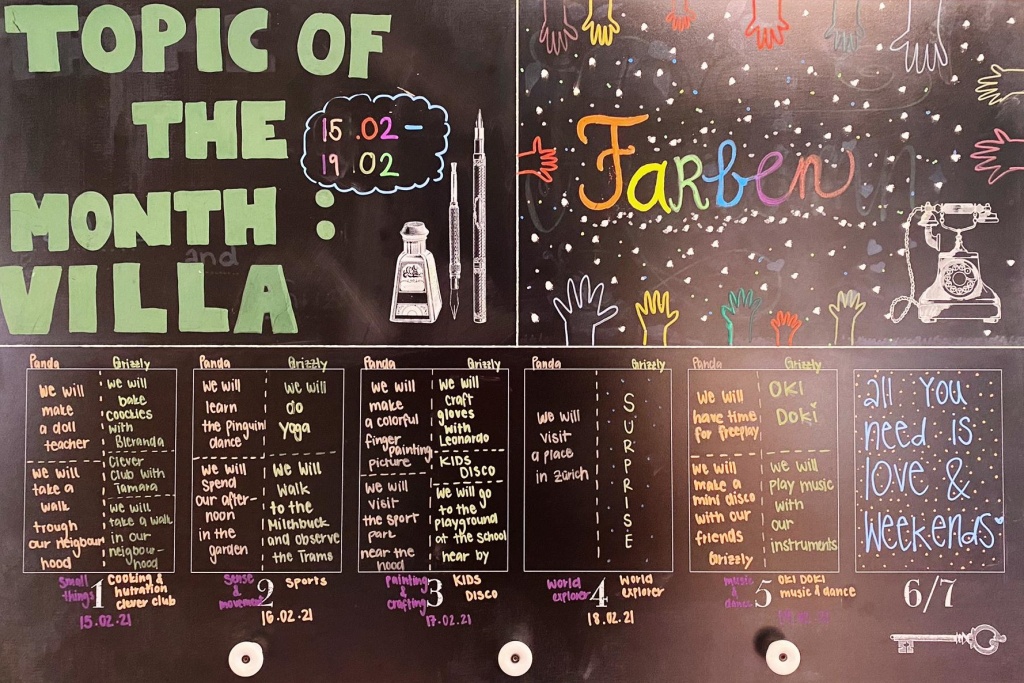 TOPIC OF
THE
MONTH :
and
VILLA
15.02 -
19.02
Farben
Panda
We will
make
a doll
teacher
We will
take a
walk
trough
our neigbour
hood
Grizzly
We will
bake
coockies
with
Bleranda
Clever
Club with
Tamara
We will
take a walk
in our
neigbou-
hood
Small
things
1
Cooking &
nutration
clever club
15.02.21
Panda
We will
learn
the Pinguini
dance
We will
spend
our after-
noon
in the
garden
Grizzly
We will
do
yoga
We will
walk
to the
Milchbuck
and observe
the Trams
Sense
&
movement
2
Sports
16.02.21
Panda
We will
make
a colorful
finger
painting
picture
We will
visit
the sport
park
near the
hood
Grizzly
We will
craft
gloves
with
Leonardo
KIDS
DISCO
We will go
to the
playground
at the School
near by
painting
&
crafting
3
KIDS
DISCO
17.02.21
Panda
We will
visit
a place
in Zürich
Grizzly
SURPRISE
World
explorer
4
World
explorer
18.02.21
Panda
We will
have time
for freeplay
We will
make a
mini disco
with our
friends
Grizzly
Grizzly
OKI
DOKI
We will
play music
with
our
instruments
music
&
dance
5
OKI DOKI
music & dance
all you
need is
love &
weekends
6/7